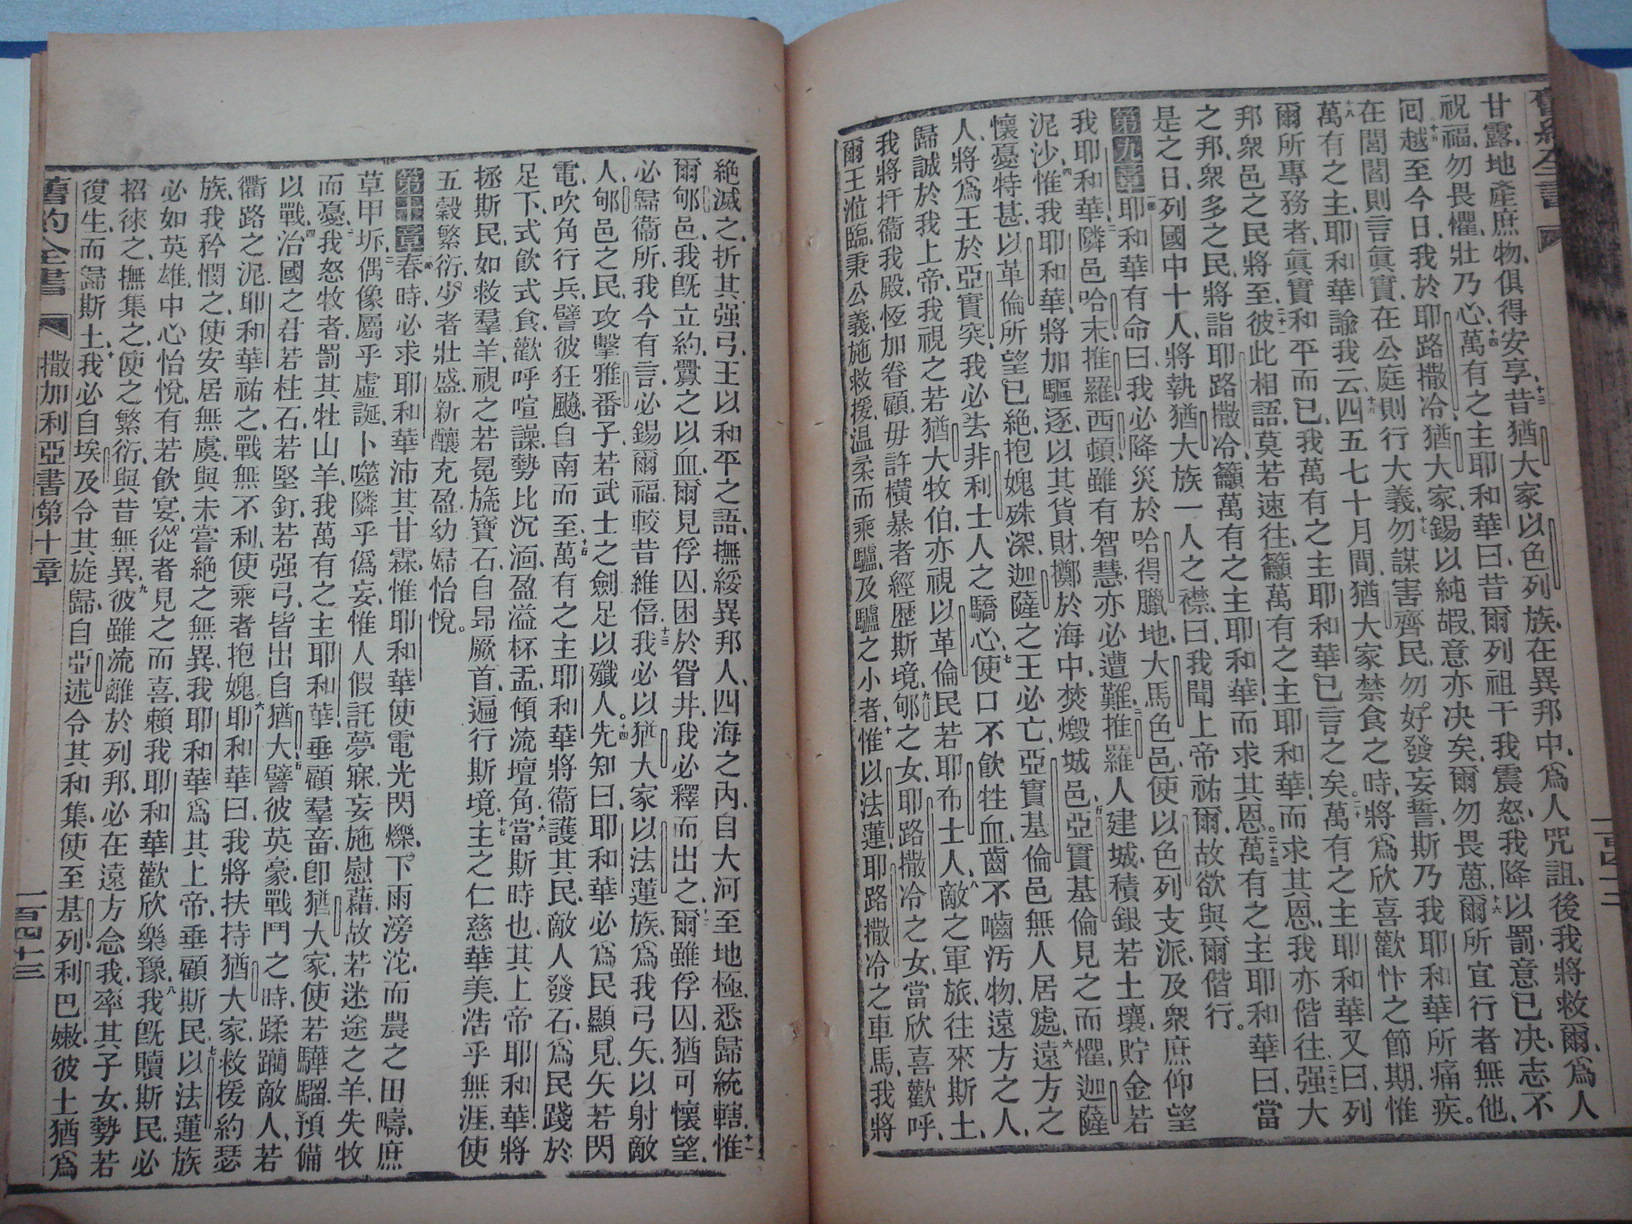 甘露地產庶物俱得安享昔猶大家以色列族在異邦中爲人咒詛後我將救爾爲人
祝福勿畏懼壯乃心萬有之主耶和華曰昔爾列祖干我震怒我降以罰意已决志不
囘越至今日我於耶路撒冷猶大家錫以純嘏意亦决矣爾勿畏葸爾所宜行者無他
在閭閻則言眞實在公庭則行大義勿謀害齊民勿好發妄誓斯乃我耶和華所痛疾。
萬有之主耶和華諭我云四五七十月間猶大家禁食之時將爲欣喜歡忭之節期惟
爾所專務者眞實和平而已我萬有之主耶和華已言之矣萬有之主耶和華又曰列
邦衆邑之民將至彼此相語莫若速往籲萬有之主耶和華而求其恩我亦偕往强大
之邦衆多之民將詣耶路撒冷籲萬有之主耶和華而求其恩萬有之主耶和華曰當
是之日列國中十人將執猶大族一人之襟曰我聞上帝祐爾故欲與爾偕行。
第九章耶和華有命曰我必降災於哈得臘地大馬色邑使以色列支派及衆庶仰望
我耶和華隣邑哈末推羅西頓雖有智慧亦必遭難推羅人建城積銀若土壤貯金若
泥沙惟我耶和華將加驅逐以其貨財擲於海中焚燬城邑亞實基倫見之而懼迦薩
懷憂特甚以革倫所望已絶抱媿殊深迦薩之王必亡亞實基倫邑無人居處遠方之
人將爲王於亞實突我必去非利士人之驕心使口不飲牲血齒不嚙汚物遠方之人
歸誠於我上帝我視之若猶大牧伯亦視以革倫民若耶布士人敵之軍旅往來斯土
我將扞衞我殿恆加眷顧毋許橫暴者經歷斯境郇之女耶路撒冷之女當欣喜歡呼
爾王涖臨秉公義施救援温柔而乘驢及驢之小者惟以法蓮耶路撒冷之車馬我將
一百四十二
絶滅之折其强弓王以和平之語撫綏異邦人四海之內自大河至地極悉歸統轄惟
爾郇邑我旣立約釁之以血爾見俘囚困於眢井我必釋而出之爾雖俘囚猶可懷望
必歸衞所我今有言必錫爾福較昔維倍我必以猶大家以法蓮族爲我弓矢以射敵
人郇邑之民攻擊雅番子若武士之劍足以殲人。先知曰耶和華必爲民顯見矢若閃
電吹角行兵譬彼狂飈自南而至萬有之主耶和華將衞護其民敵人發石爲民踐於
足下式飲式食歡呼喧譟勢比沉湎盈溢杯盂傾流壇角當斯時也其上帝耶和華將
拯斯民如救羣羊視之若冕旒寶石自昻厥首遍行斯境主之仁慈華美浩乎無涯使
五穀繁衍少者壯盛新釀充盈幼婦怡悅。
第十章春時必求耶和華沛其甘霖惟耶和華使電光閃爍下雨滂沱而農之田疇庶
草甲坼偶像屬乎虛誕卜噬隣乎僞妄惟人假託夢寐妄施慰藉故若迷途之羊失牧
而憂我怒牧者罰其牡山羊我萬有之主耶和華垂顧羣畜卽猶大家使若驊騮預備
以戰治國之君若柱石若堅釘若强弓皆出自猶大譬彼英豪戰鬥之時蹂躪敵人若
衢路之泥耶和華祐之戰無不利使乘者抱媿耶和華曰我將扶持猶大家救援約瑟
族我矜憫之使安居無虞與未嘗絶之無異我耶和華爲其上帝垂顧斯民以法蓮族
必如英雄中心怡悅有若飲宴從者見之而喜賴我耶和華歡欣樂豫我旣贖斯民必
招徠之撫集之使之繁衍與昔無異彼雖流離於列邦必在遠方念我率其子女勢若
復生而歸斯土我必自埃及令其旋歸自亞述令其和集使至基列利巴嫩彼土猶爲
舊約全書 撒加利亞書第十章 一百四十三